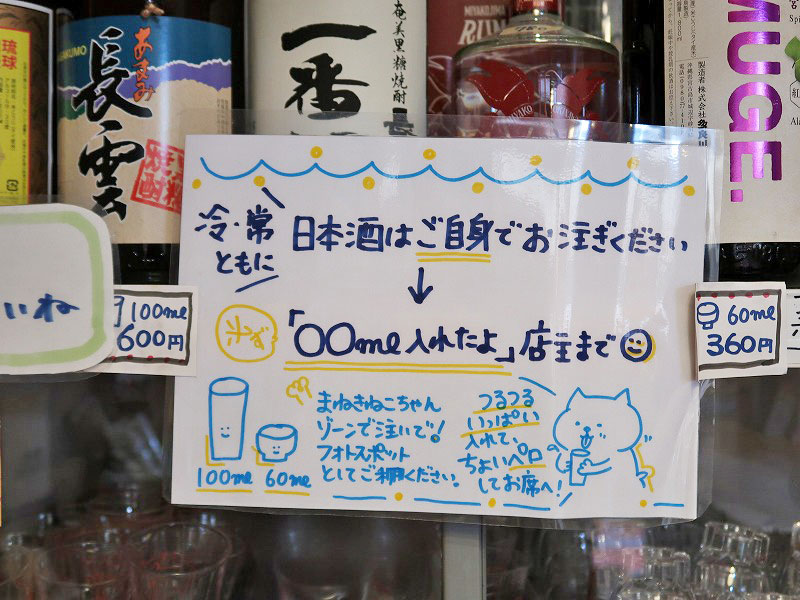 琉球
あまみ
長雲
NAGAKUMO
奄美黒糖焼酎
一番
長
MIYAKOJIMA
RUM
MUGE.
製造者 株式会社 多良川
冷・常
ともに
日本酒はご自身でお注ぎください
↓
必ず
「〇〇ml入れたよ」店主まで
まねきねこちゃん
ゾーンで注いで!
フォトスポット
としてご利用ください。
100ml 60ml
つるつる
いっぱい
入れて、
ちょいペロ
してお席へ!
いいね
100ml
600円
60ml
360円